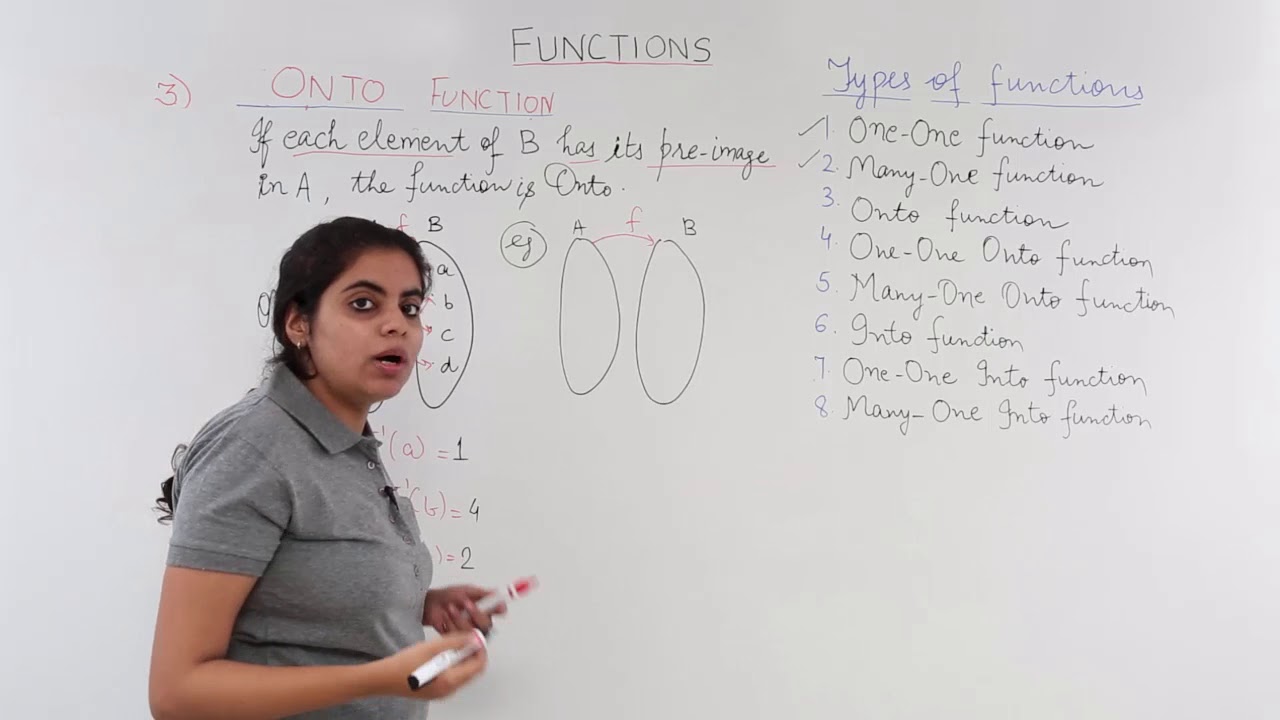 FUNCTIONS
3) ONTO FUNCTION
If each element of B has its pre-image
in A, the function is Onto.
f B
a
b
c
d
(a) = 1
(b) = 4
) = 2
eg A f B
Types of functions
1. One-One function
2. Many-One function
3. Onto function
4. One-One Onto function
5. Many-One Onto function
6. Into function
7. One-One Into function
8. Many-One Into function